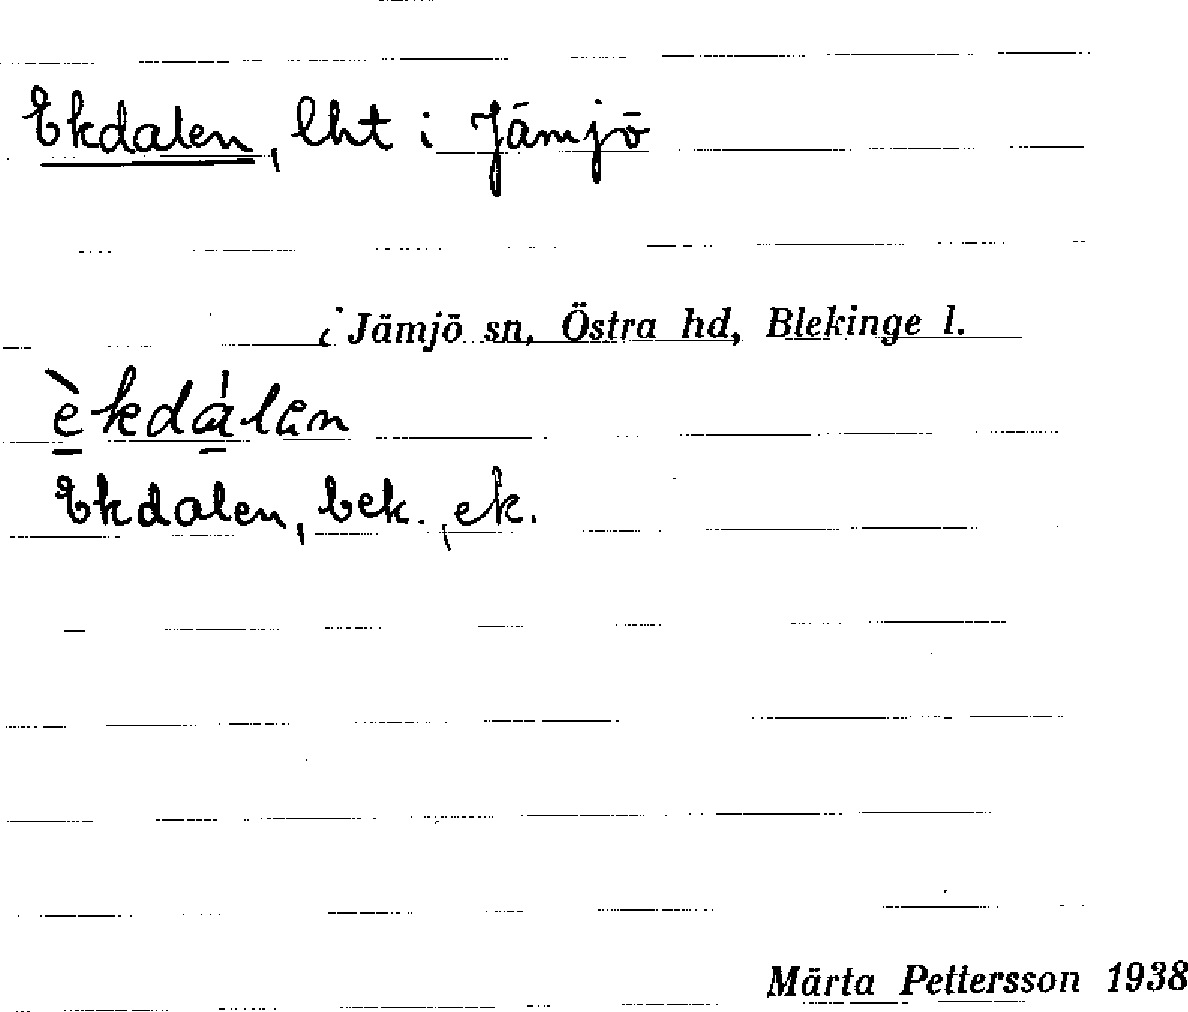 Ekdalen, lht i Jämjö
i Jämjö sn, Östra hd, Blekinge l.
èkdálen
Ekdalen, bek., ek.
Märta Pettersson 1938